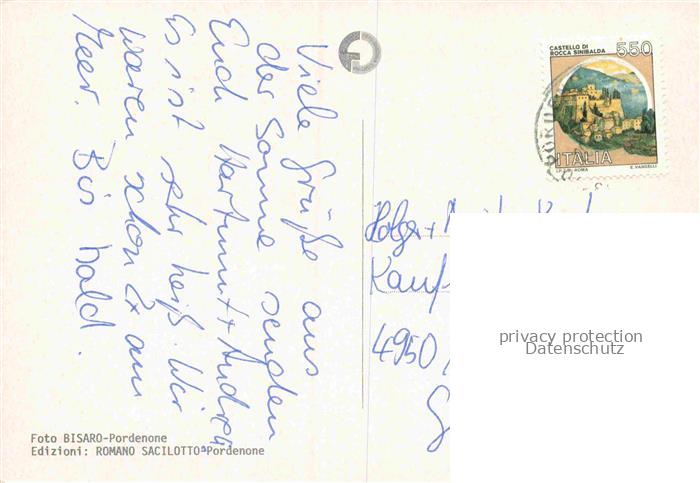 Viele Grüße aus
der Sonne senden
Euch Hartmut + Andrea
Es ist sehr heiß. Wir
waren schon 2x am
Meer. Bis bald.
CASTELLO DI
ROCCA SINIBALDA
550
ITALIA
I.P.Z.S. ROMA
E. VANGELLI
Holger +
Kauf
4950
privacy protection
Datenschutz
Foto BISARO-Pordenone
Edizioni: ROMANO SACILOTTO-Pordenone